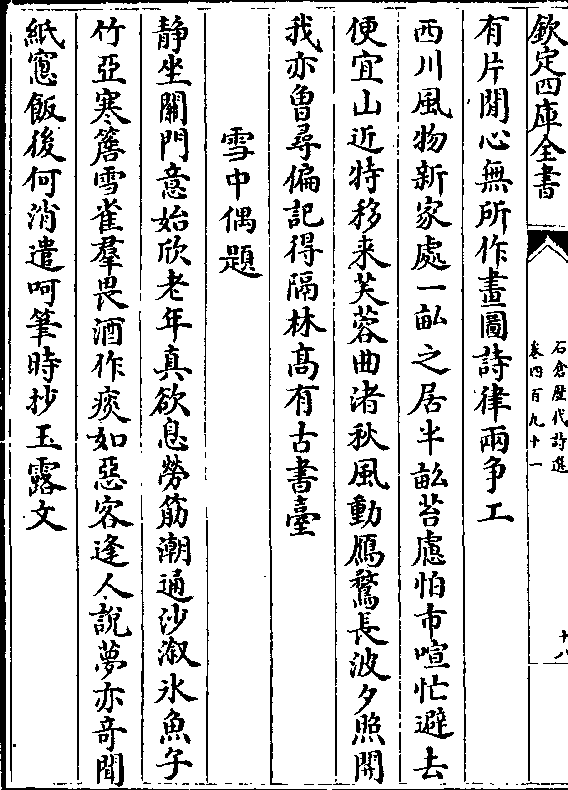 欽定四庫全書
石倉歷代詩選
卷四百九十一
十八
有片閒心無所作畫圖詩律兩爭工
西川風物新家處一畝之居半畝苔慮怕市喧忙避去
便宜山近特移来芙蓉曲渚秋風動鴈鶩長波夕照開
我亦曾尋偏記得隔林髙有古書臺
雪中偶題
静坐關門意始欣老年真欲息勞筋潮通沙溆氷魚午
竹亞寒簷雪雀羣畏酒作痰如惡客逢人說夢亦竒聞
紙窻飯後何消遣呵筆時抄玉露文